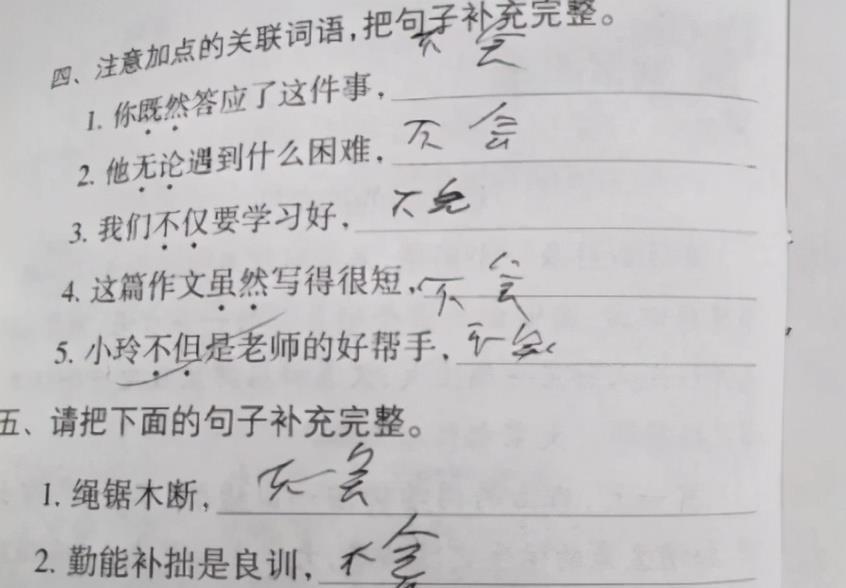 四、注意加点的关联词语,把句子补充完整。
1. 你既然答应了这件事,不会
2. 他无论遇到什么困难,不会
3. 我们不仅要学习好,不会
4. 这篇作文虽然写得很短,不会
5. 小玲不但是老师的好帮手,不会
五、请把下面的句子补充完整。
1. 绳锯木断,不会
2. 勤能补拙是良训,不会